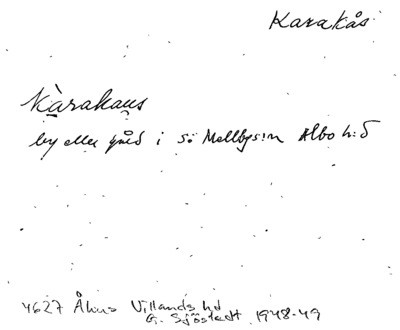 Karakås
Kàrakaus
by eller gård i S: Mellbys:n Albo h:d
4627 Åhus Villands hd
G. Sjöstedt 1948-49